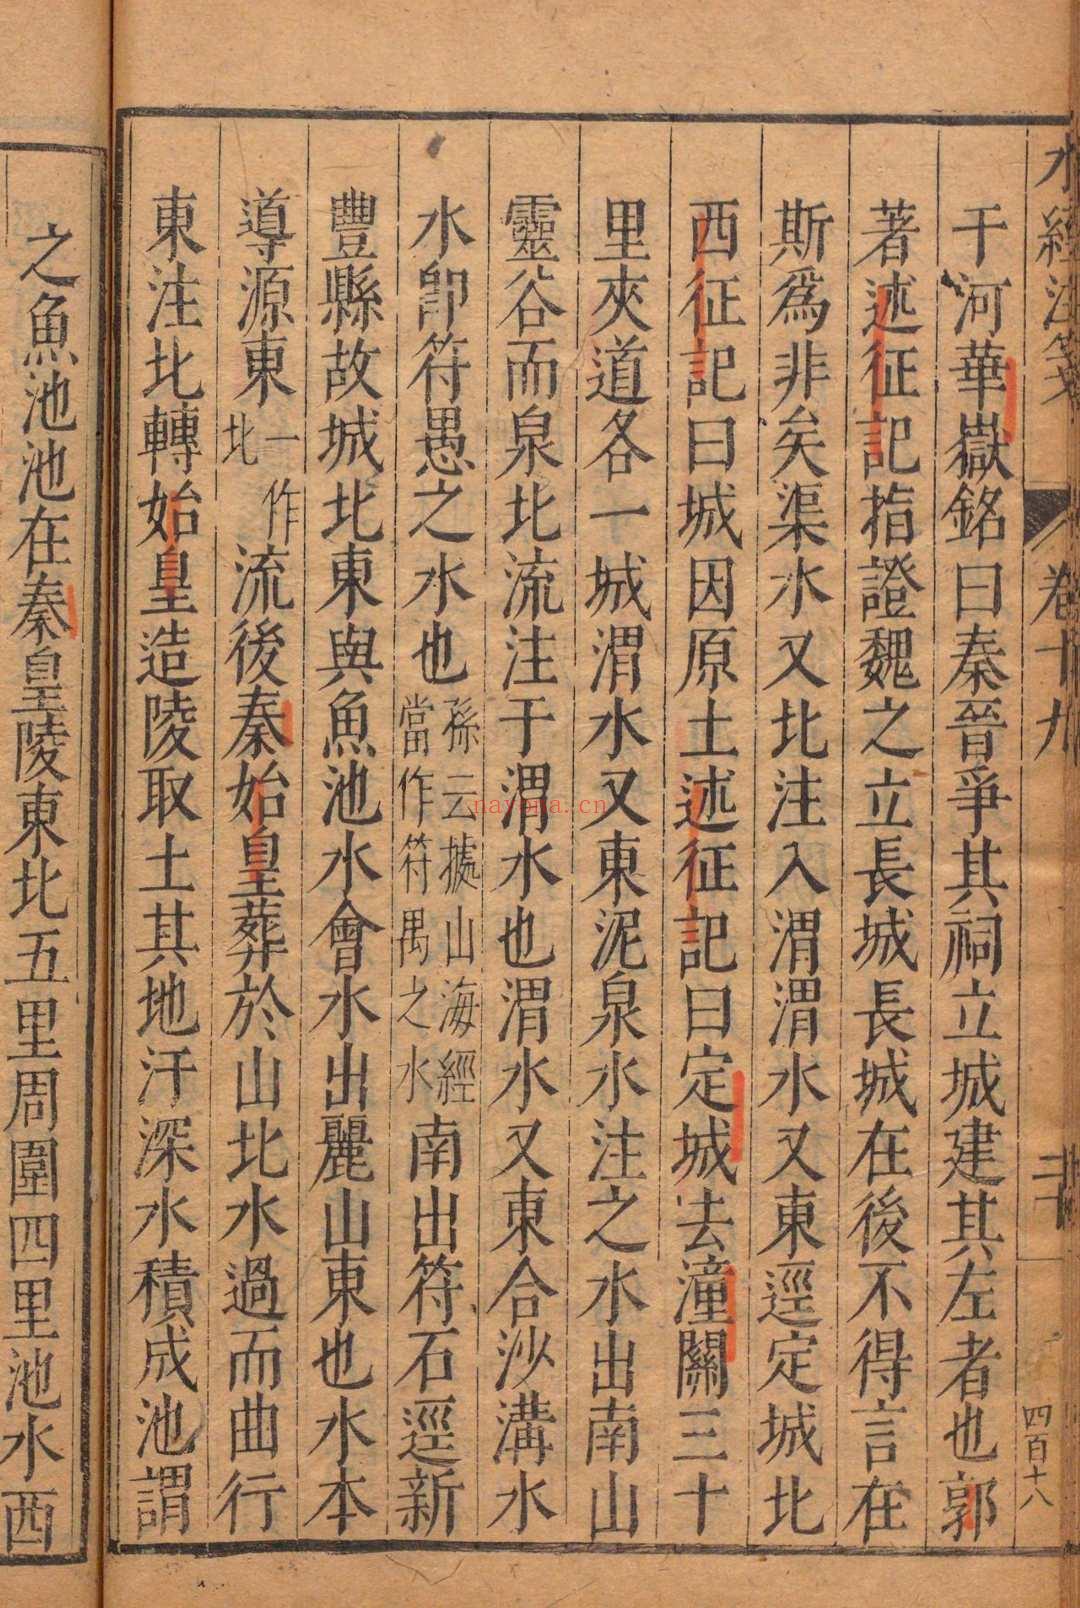 水經注箋 卷十九 四百十八
于河華嶽銘曰秦晉爭其祠立城建其左者也郭
著述征記指證魏之立長城長城在後不得言在
斯爲非矣渠水又北注入渭渭水又東逕定城北
西征記曰城因原土述征記曰定城去潼關三十
里夾道各一城渭水又東泥泉水注之水出南山
靈谷而泉北流注于渭水也渭水又東合沙溝水
水卽符愚之水也孫云據山海經當作符禺之水南出符石逕新
豐縣故城北東與魚池水會水出麗山東也水本
導源東一作北流後秦始皇葬於山北水過而曲行
東注北轉始皇造陵取土其地汙深水積成池謂
之魚池池在秦皇陵東北五里周圍四里池水西
nayona.cn